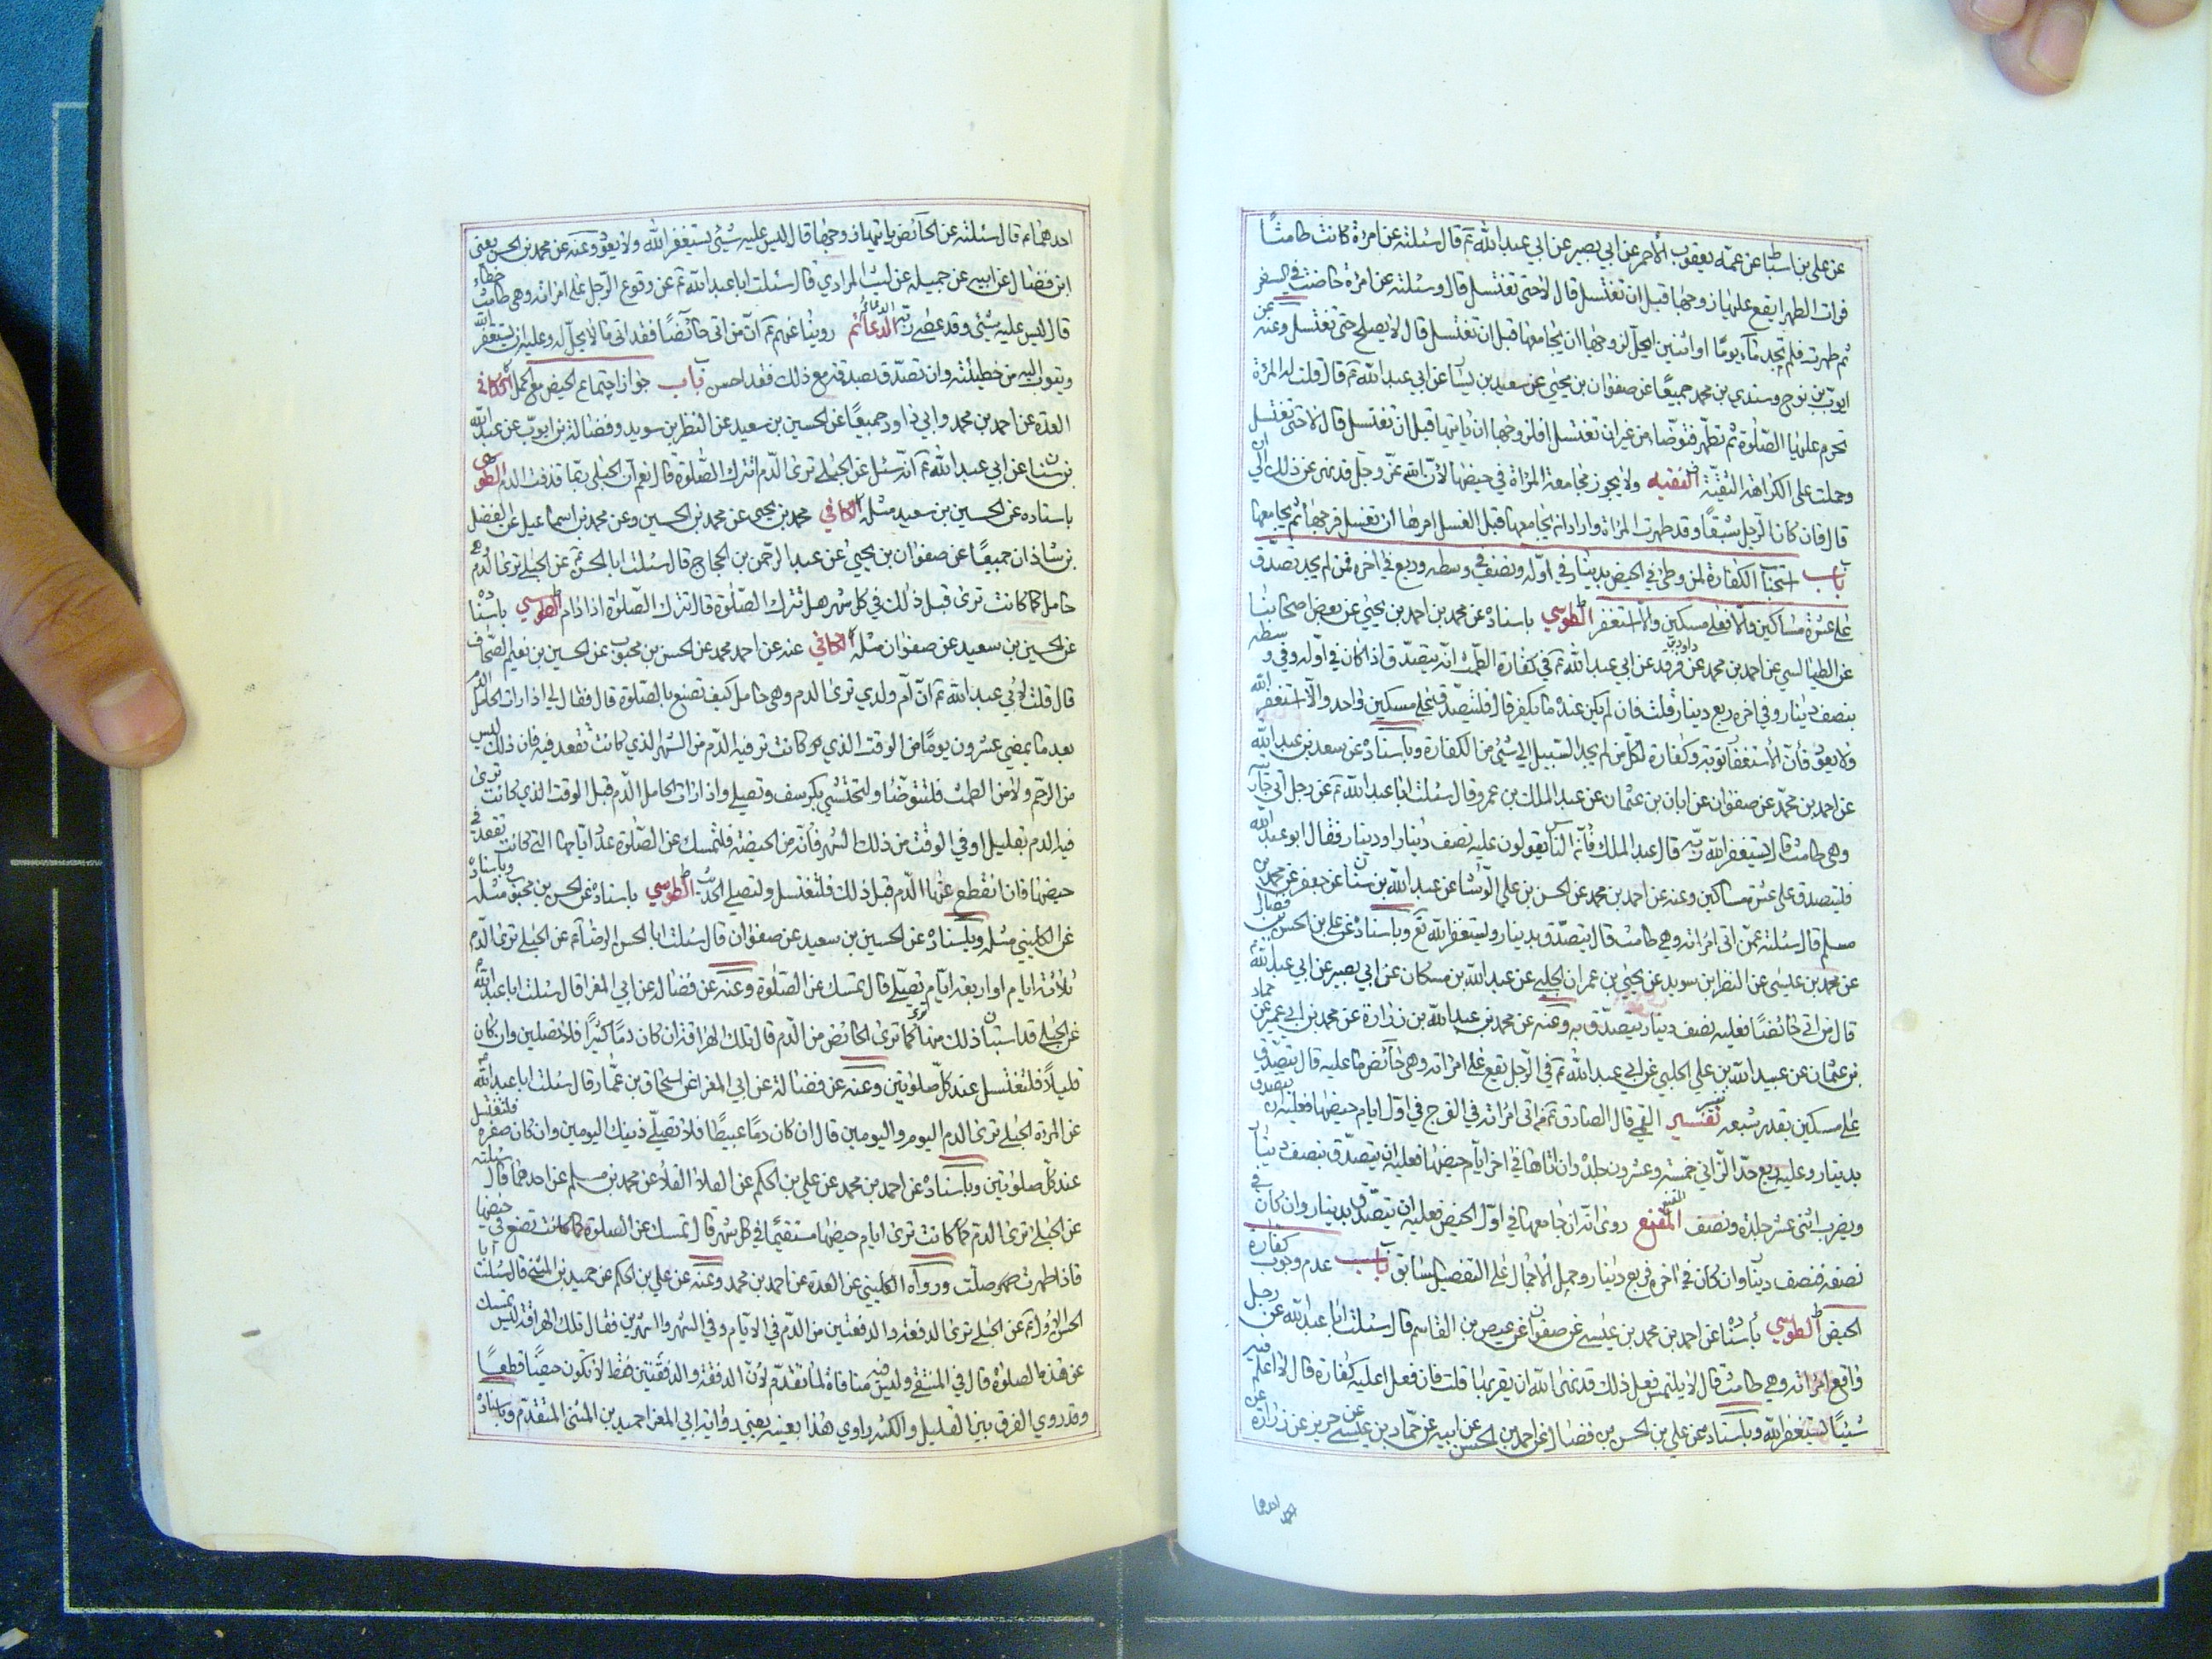 عن علي بن اسباط عن عمه يعقوب الأحمر عن ابي بصير عن ابي عبد الله ع قال سئلته عن امرءة كانت طامثا
فرات الطهر ايقع عليها زوجها قبل ان تغتسل قال لا حتى تغتسل قال وسئلته عن امرءة حاضت في السفر
ثم طهرت فلم تجد ماء يوما او اثنين ايحل لزوجها ان يجامعها قبل ان تغتسل قال لا يصلح حتى تغتسل وعنه عن
ايوب بن نوح وسندي بن محمد جميعا عن صفوان بن يحيى عن سعيد بن يسار عن ابي عبد الله ع قال قلت له المرءة
تحرم عليها الصلوة ثم تطهر فتوضاء من غير ان تغتسل افلزوجها ان ياتيها قبل ان تغتسل قال لا حتى تغتسل
وحملت على الكراهة التقية الفقيه ولا يجوز مجامعة المراة في حيضها لأن الله عز وجل قد نهى عن ذلك الى ان
قال فان كان الرجل شبقا وقد طهرت المراة واراد ان يجامعها قبل الغسل امرها ان تغسل فرجها ثم يجامعها
باب استحباب الكفارة لمن وطئ في الحيض بدينار في اوله ونصف في وسطه وربع في اخره فمن لم يجد تصدق
على عشرة مساكين والا فعلى مسكين والا استغفر الطوسي باسناده عن محمد بن احمد بن يحيى عن بعض اصحابنا
عن الطيالسي عن احمد بن محمد عن داود بن فرقد عن ابي عبد الله ع في كفارة الطمث انه يتصدق اذا كان في اوله وفي وسطه
بنصف دينار وفي اخره ربع دينار قلت فان لم يكن عنده ما يكفر قال فليتصدق على مسكين واحد والا استغفر الله
ولا يعود فان الأستغفار توبة وكفارة لكل من لم يجد السبيل الى شئ من الكفارة وباسناده عن سعد بن عبد الله
عن احمد بن محمد عن صفوان عن ابان بن عثمان عن عبد الملك بن عمرو قال سئلت ابا عبد الله ع عن رجل اتى جاريته
وهي طامث قال يستغفر الله ربه قال عبد الملك فان الناس يقولون عليه نصف دينار او دينار فقال ابو عبد الله
فليتصدق على عشرة مساكين وعنه عن احمد بن محمد عن الحسن بن علي الوشا عن عبد الله بن سنان عن حفص عن محمد بن
مسلم قال سئلته عمن اتى امراته وهي طامث قال يتصدق بدينار ويستغفر الله تع وباسناده عن علي بن الحسن بن فضال
عن محمد بن عيسى عن النضر بن سويد عن يحيى بن عمران الحلبي عن عبد الله بن مسكان عن ابي بصير عن ابي عبد الله ع
قال من اتى حائضا فعليه نصف دينار يتصدق به وعنه عن محمد بن عبد الله بن زرارة عن محمد بن ابي عمير عن حماد
بن عثمان عن عبيد الله بن علي الحلبي عن ابي عبد الله ع في الرجل يقع على امراته وهي حائض ما عليه قال يتصدق
على مسكين بقدر شبعه تفسير القمي قال الصادق ع من اتى امراته في الفرج في اول ايام حيضها فعليه ان يتصدق
بدينار وعليه ربع حد الزاني خمسة وعشرون جلدة وان اتاها في اخر ايام حيضها فعليه ان يتصدق بنصف دينار
ويضرب اثنى عشر جلدة ونصف المقنع روى انه ان جامعها في اول الحيض فعليه ان يتصدق بدينار وان كان في
نصفه فنصف دينار وان كان في اخره فربع دينار وحمل الأجمال على التفصيل السابق باب عدم وجوب كفارة
الحيض الطوسي باسناده عن احمد بن محمد بن عيسى عن صفوان عن عيص بن القاسم قال سئلت ابا عبد الله عن رجل
واقع امراته وهي طامث قال لا يلتمس فعل ذلك قد نهى الله ان يقربها قلت فان فعل اعليه كفارة قال لا اعلم فيه
شيئا يستغفر الله وباسناده عن علي بن الحسن بن فضال عن احمد بن الحسن عن ابيه عن حماد بن عيسى عن حريز عن زرارة عن
احدهما
احدهما ع قال سئلته عن الحائض ياتيها زوجها قال ليس عليه شئ يستغفر الله ولا يعود وعنه عن محمد بن الحسن يعني
ابن فضال عن ابيه عن جميله عن ليث المرادي قال سئلت ابا عبد الله ع عن وقوع الرجل على امراته وهي طامث خطاء
قال ليس عليه شئ وقد عصى ربه الدعائم روينا عنهم ع ان من اتى حائضا فقد اتى ما لا يحل له وعليه ان يستغفر الله
ويتوب اليه من خطيئته وان تصدق بصدقة مع ذلك فقد احسن باب جواز اجتماع الحيض مع الحمل الكافي
العدة عن احمد بن محمد وابي داود جميعا عن الحسين بن سعيد عن النظر بن سويد وفضالة بن ايوب عن عبد الله
بن سنان عن ابي عبد الله ع انه سئل عن الحبلى ترى الدم اتترك الصلوة قال نعم ان الحبلى ربما قذفت الدم الطوسي
باسناده عن الحسين بن سعيد مثله الكافي محمد بن يحيى عن محمد بن الحسين وعن محمد بن اسماعيل عن الفضل
بن شاذان جميعا عن صفوان بن يحيى عن عبد الرحمن بن الحجاج قال سئلت ابا الحسن ع عن الحبلى ترى الدم وهي
حامل كما كانت ترى قبل ذلك في كل شهر هل تترك الصلوة قال تترك الصلوة اذا دام الطوسي باسناده
عن الحسين بن سعيد عن صفوان مثله الكافي عنه عن احمد محمد عن الحسن بن محبوب عن الحسين بن نعيم الصحاف
قال قلت لأبي عبد الله ع ان ام ولدي ترى الدم وهي حامل كيف تصنع بالصلوة قال فقال لي اذا رات الحامل الدم
بعد ما يمضي عشرون يوما من الوقت الذي هو كانت تر فيه الدم من الشهر الذي كانت تقعد فيه فان ذلك ليس
من الرحم ولا من الطمث فلتتوضأ ولتحتشي بكرسف وتصلي واذا رات الحامل الدم قبل الوقت الذي كانت ترى
فيه الدم بقليل او في الوقت من ذلك الشهر فانه من الحيضة فلتمسك عن الصلوة عدد ايامها التي كانت تقعد في
حيضها فان انقطع عنها الدم قبل ذلك فلتغتسل ولتصلي الحديث الطوسي باسناده عن الحسن بن محبوب مثله وباسناده
عن الكليني مثله وباسناده عن الحسين بن سعيد عن صفوان قال سئلت ابا الحسن الرضا ع عن الحبلى ترى الدم
ثلاثة ايام او اربعة ايام تصلي قال تمسك عن الصلوة وعنه عن فضالة عن ابي المغرا قال سئلت ابا عبد الله ع
عن الحبلى قد استبان ذلك منها ترى كما ترى الحائض من الدم قال تلك الهراقة ان كان دما كثيرا فلا تصلين وان كان
قليلا فلتغتسل عند كل صلوتين وعنه عن فضالة عن ابي المغرا عن اسحاق بن عمار قال سئلت ابا عبد الله ع
عن المرءة الحبلى ترى الدم اليوم واليومين قال ان كان دما عبيطا فلا تصلي ذينك اليومين وان كان صفرة فلتغتسل
عند كل صلوتين وباسناده عن احمد بن محمد عن علي بن الحكم عن العلاء عن محمد بن مسلم عن احدهما قال سئلته
عن الحبلى ترى الدم كما كانت ترى ايام حيضها مستقيما في كل شهر قال تمسك عن الصلوة كما كانت تصنع في حيضها
فاذا طهرت صلت ورواه الكليني عن العدة عن احمد بن محمد وعنه عن علي بن الحكم عن حميد بن المثنى قال سئلت ابا
الحسن الأول ع عن الحبلى ترى الدفعة والدفعتين من الدم في الايام وفي الشهر والشهرين فقال تلك الهراقة ليس تمسك
عن هذه الصلوة قال في المنتقى وليس فيه منافاة لما تقدم لأن الدفقة والدفقتين فقط لا تكون حيضا قطعا
وقد روي الفرق بين القليل والكثير راوي هذا بعينه يعني رواية ابي المغرا حميد بن المثنى المتقدم وباسناده